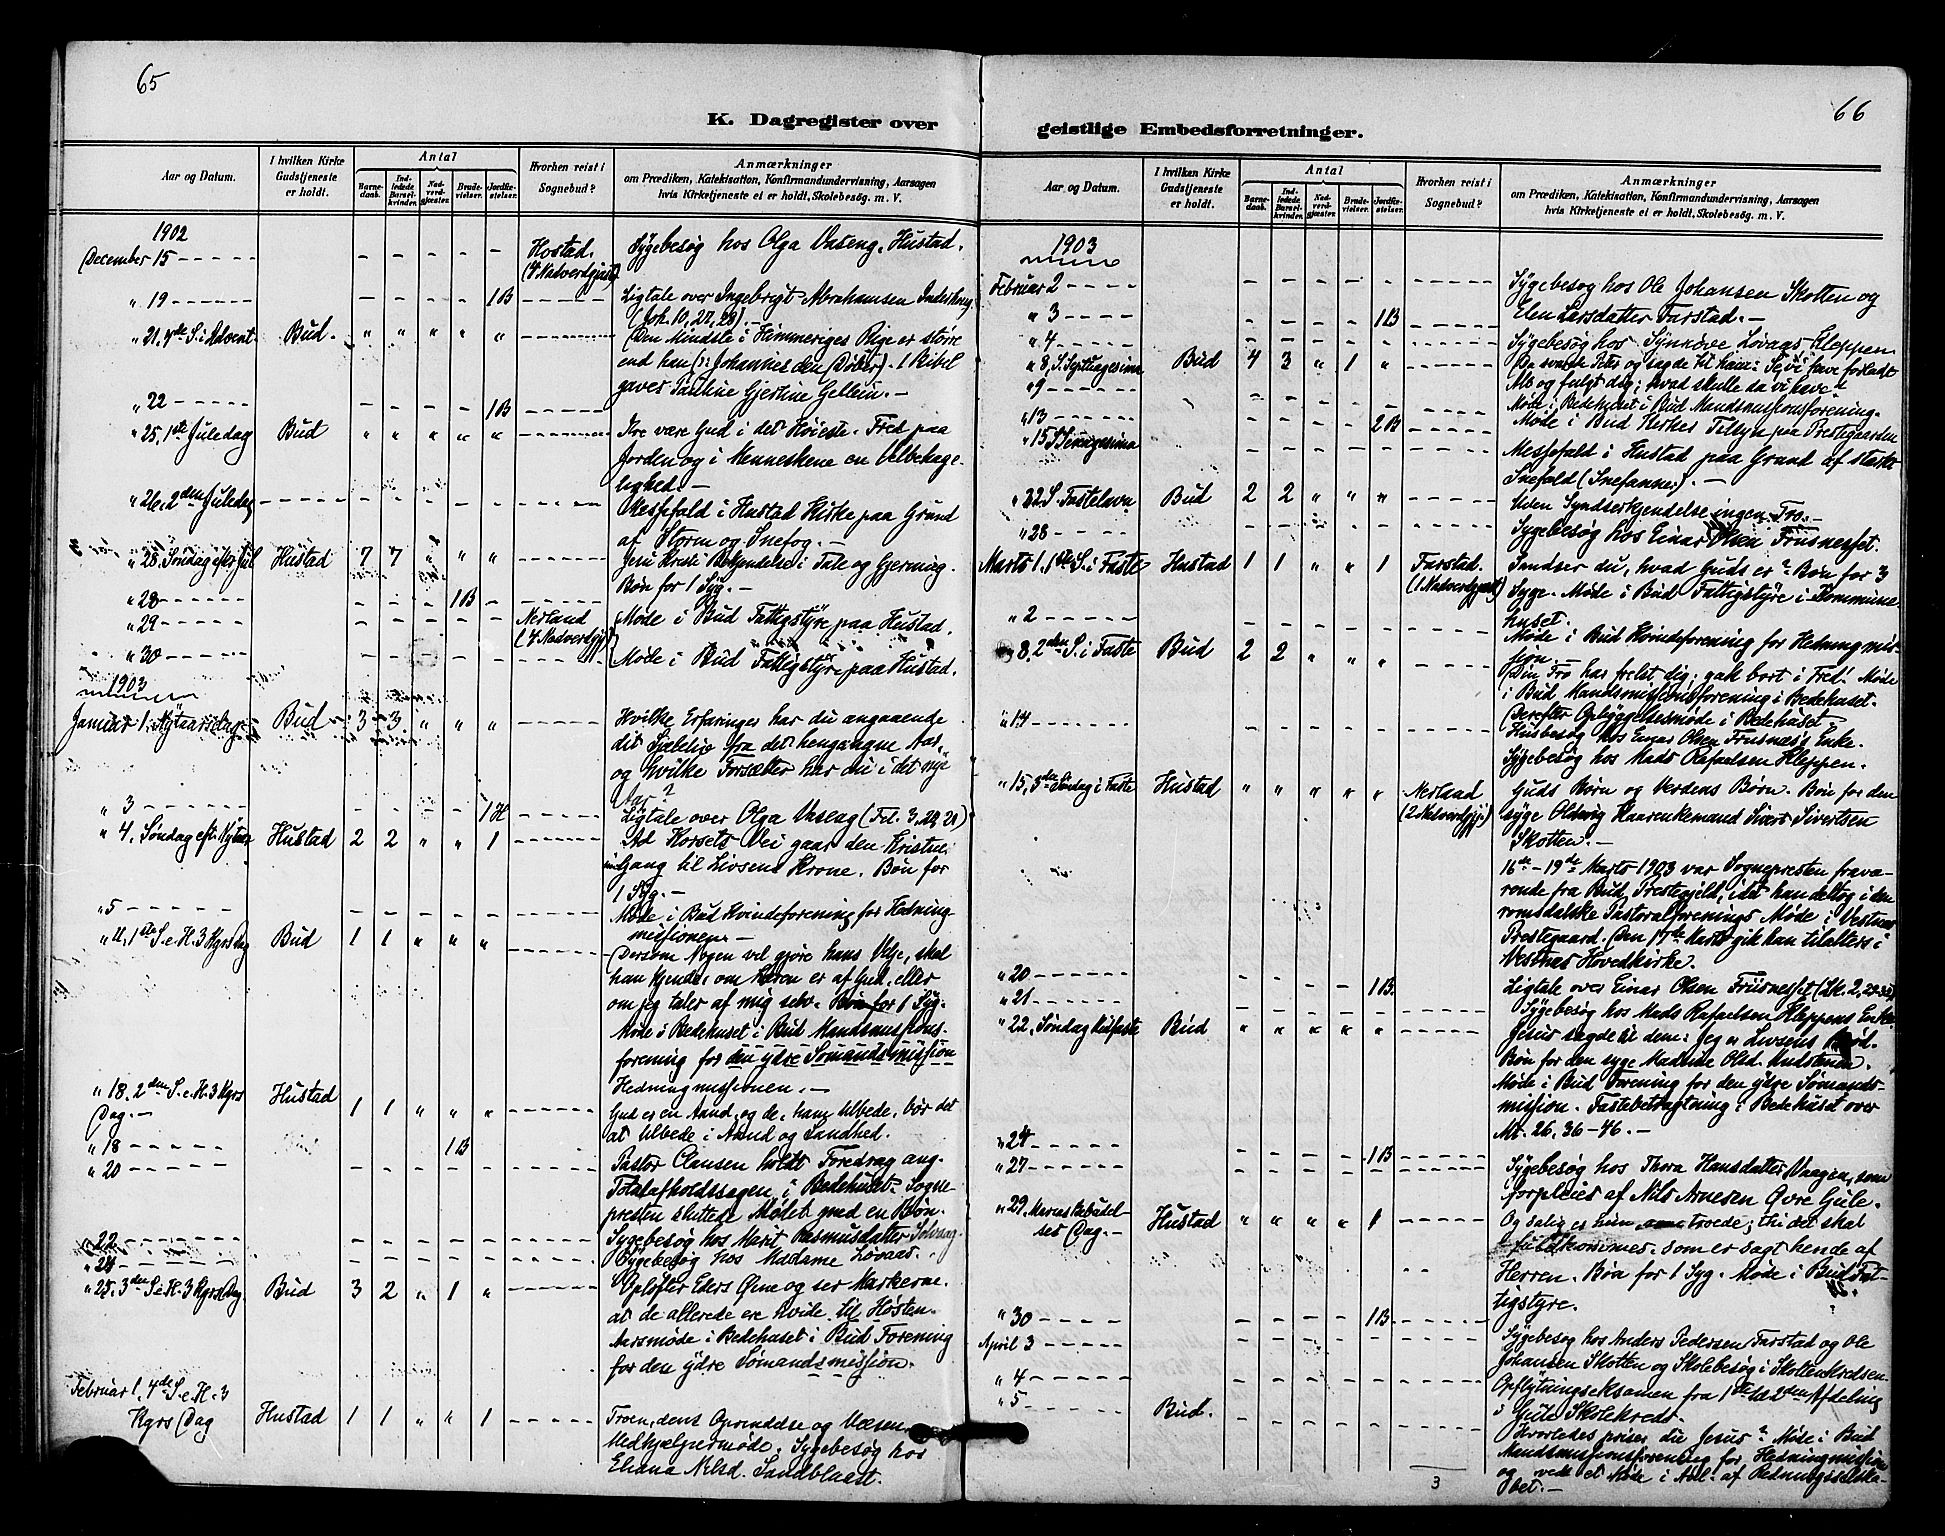 65
K. Dagregister over
Aar og Datum.
I hvilken Kirke Gudstjeneste er holdt.
Antal
Barne-daab.
Ind-ledede Barsel-kvinder.
Nad-verd-gjæster.
Brude-vielser.
Jordfæ-stelser.
Hvorhen reist i Sognebud?
Anmærkninger
om Prædiken, Katekisation, Konfirmandundervisning, Aarsagen
hvis Kirketjeneste ei er holdt, Skolebesøg. m. V.
1902
December 15 - - - - - Hostad. Sygebesøg hos Olga Vaseng, Hustad.
(4 Nadverdgj.)
" 19 - - - - 1 B - - - Ligtale over Ingebrigt Abrahamsen
(Joh. 10, 27, 28). -
" 21. 4de S. i Advent. Bud. " " " " " Den Mindste i Himmeriges Rige er større
end han (ɔ: Johannes den Døber). 1 Bibel
gaves Pauline Gjertine Gellein. -
" 22 - - - - 1 B
" 25. 1ste Juledag Bud " " " " " - - - Ære være Gud i det Høieste. Fred paa
Jorden og i Menneskene en Velbehage-
lighed. -
" 26. 2den Juledag - - - - - - - Messefald i Hustad Kirke paa Grund
af Storm og Snefog. -
" 28. Søndag efter Jul Hustad 7 7 " " " Jesu Kristi Bekjendelse i Tale og Gjerning.
Bøn for 1 Syg. -
" 28 - - - - 1 B -
" 29 - - - - - Nerland Møde i Bud Fattigstyre paa Hustad.
(4 Nadverdgj.)
" 30 - - - - - Møde i Bud Fattigstyre paa Hustad.
1903
Januar 1. Nytaarsdag - Bud - 3 - 3 " " " - - - Hvilke Erfaringer har du angaaende
dit Sjæleliv fra det hengangne Aar,
og hvilke Forsætter har du i det nye
Aar?
" 3 - - - - 1 H - - - Ligtale over Olga Vaseng (Fil. 3, 20, 21)
" 4. Søndag eft. Nytaar Hustad 2 2 " " 1 - - - Ad Korsets Vei gaar den Kristne
Gang til Livsens Krone. Bøn for
1 Syg. -
" 5 - - - - - Møde i Bud Kvindeforening for Hedning-
missionen. -
" 11, 1ste S. e. H. 3 Kgrs Dag Bud 1 1 " " " - - - Dersom Nogen vil gjøre hans Vilje, skal
han kjende, om Læren er af Gud, eller
om jeg taler af mig selv. Bøn for 1 Syg.
Møde i Bedehuset i Bud Mandsmissions-
forening for den ydre Sømandsmission
Hedningmissionen. -
" 18. 2den S. e. H. 3 Kgrs Hustad
Dag. - 1 1 " " " - - - Gud er en Aand, og de, ham tilbede, bør det
at tilbede i Aand og Sandhed.
" 18 - - - 1 B
" 20 - - - - - Pastor Clausen holdt Foredrag ang.
Totalafholdssagen i Bedehuset. Sogne-
presten sluttede Mødet med en Bøn.
" 22 - - - - Sygebesøg hos Marit Rasmusdatter
" 24 - - - - Sygebesøg hos Madame Løvaas.
" 25. 3den S. e. H. 3 Kgrs Dag Bud 3 2 " 1 " - - - Opløfter Eders Øine og ser Markerne,
at de allerede ere hvide til Høsten.
Aarsmøde i Bedehuset i Bud Forening
for den ydre Sømandsmission.
Februar 1. 4de S. e. H. 3
Kgrs Dag Hustad 1 1 " " 1 - - - Troen, dens Oprindelse og Væsen.
Medhjælpermøde. Sygebesøg hos
Eliana Nilsd. Sandblaast.
66
geistlige Embedsforretninger.
Aar og Datum.
I hvilken Kirke Gudstjeneste er holdt.
Antal
Barne-daab.
Ind-ledede Barsel-kvinder.
Nad-verd-gjæster.
Brude-vielser.
Jordfæ-stelser.
Hvorhen reist i Sognebud?
Anmærkninger
om Prædiken, Katekisation, Konfirmandundervisning, Aarsagen
hvis Kirketjeneste ei er holdt, Skolebesøg. m. V.
1903
Februar 2 - - - - Sygebesøg hos Ole Johansen Skotten og
" 3 - - - - 1 B Elen Larsdatter Farstad. -
" 4 - - - - Sygebesøg hos Synnøve Løvaas Kleppen
" 8, S. Septuagesima Bud 4 3 " 1 " Da svarede Peter og sagde til ham: Se, vi have forladt
" 9 - - - - Alt og fulgt dig; hvad skulle da vi have?
Møde i Bedehuset i Bud Mandsmissionsforening.
" 13 - - - - 2 B Møde i Bud Kirkes Tilsyn paa Prestegaarden
" 15 S. Sexagesima - - - Messefald i Hustad paa Grund af stærkt
Snefald (Snefanner). -
" 22 S. Fastelavn Bud 2 2 " " " - - - Uden Syndserkjendelse ingen Tro. -
" 28 - - - - Sygebesøg hos Einar Olsen Frusneset.
Marts 1. 1ste S. i Faste Hustad 1 1 " " 1 Farstad. Sandser du, hvad Guds er? Bøn for 3
(1 Nadverdgj.) Syge. Møde i Bud Fattigstyre i Kommune-
" 2 - - - - huset.
Møde i Bud Kvindeforening for Hedningmis-
sjon.
" 8. 2den S. i Faste Bud 2 2 " " " - - - Din Tro har frelst dig; gak bort i Fred! Møde
i Bud Mandsmissionsforening i Bedehuset.
Derefter Opbyggelsesmøde i Bedehuset. -
" 14 - - - - Husbesøg hos Einar Olsen Frusnæs's Enke.
Sygebesøg hos Mads Rafaelsen Kleppen.
" 15, 3die Søndag i Faste Hustad " " " " " Nerland Guds Børn og Verdens Børn. Bøn for den
(2 Nadverdgj.) syge Oldevig Haarenkemand Sivert Sivertsen
Skotten. -
16de - 19de Marts 1903 var Sognepresten fravæ-
rende fra Bud Prestegjeld, idet han deltog i den
romsdalske Pastoralforenings Møde i Vestnes
Prestegaard. Den 17de Marts gik han tilalters i
Vestnes Hovedkirke.
" 20 - - - - 1 B. Ligtale over Einar Olsen Frusneset (Lk. 2, 29-32)
" 21 - - - - Sygebesøg hos Mads Rafaelsen Kleppens Enke.
" 22, Søndag Midfaste Bud " " " " " - - - Jesus sagde til dem: Jeg er Livsens Brød.
Bøn for den syge Madme Old.
Møde i Bud Forening for den ydre Sømands-
mission. Fastebetragtning i Bedehuset over
Mt. 26, 36-46. -
" 24 - - - - 1 B
" 27 - - - - Sygebesøg hos Thora Hansdatter Vaagen, som
forpleies af Nils Arnesen Øvre Gule.
" 29. Mariæ Bebudel-
ses Dag. - Hustad " " " " 1 - - - Og salig er hun, som troede; thi det skal
fuldkommes, som er sagt hende af
Herren. Bøn for 1 Syg. Møde i Bud Fat-
tigstyre.
" 30 - - - - 1 B
April 3 - - - - Sygebesøg hos Anders Pedersen Farstad og Ole
Johansen Skotten og Skolebesøg i Skotten Kredsen.
" 4 - - - - Opflytningseksamen fra 1ste til 2den Afdeling
i Gule Skolekreds.
" 5 Bud. - - - - Hvorledes priser du Jesus? Møde i Bud
Mandsmissionsforening for Hedningmission
og vedt. et Møde i Anl. af Redningsselska-
bet. -
3